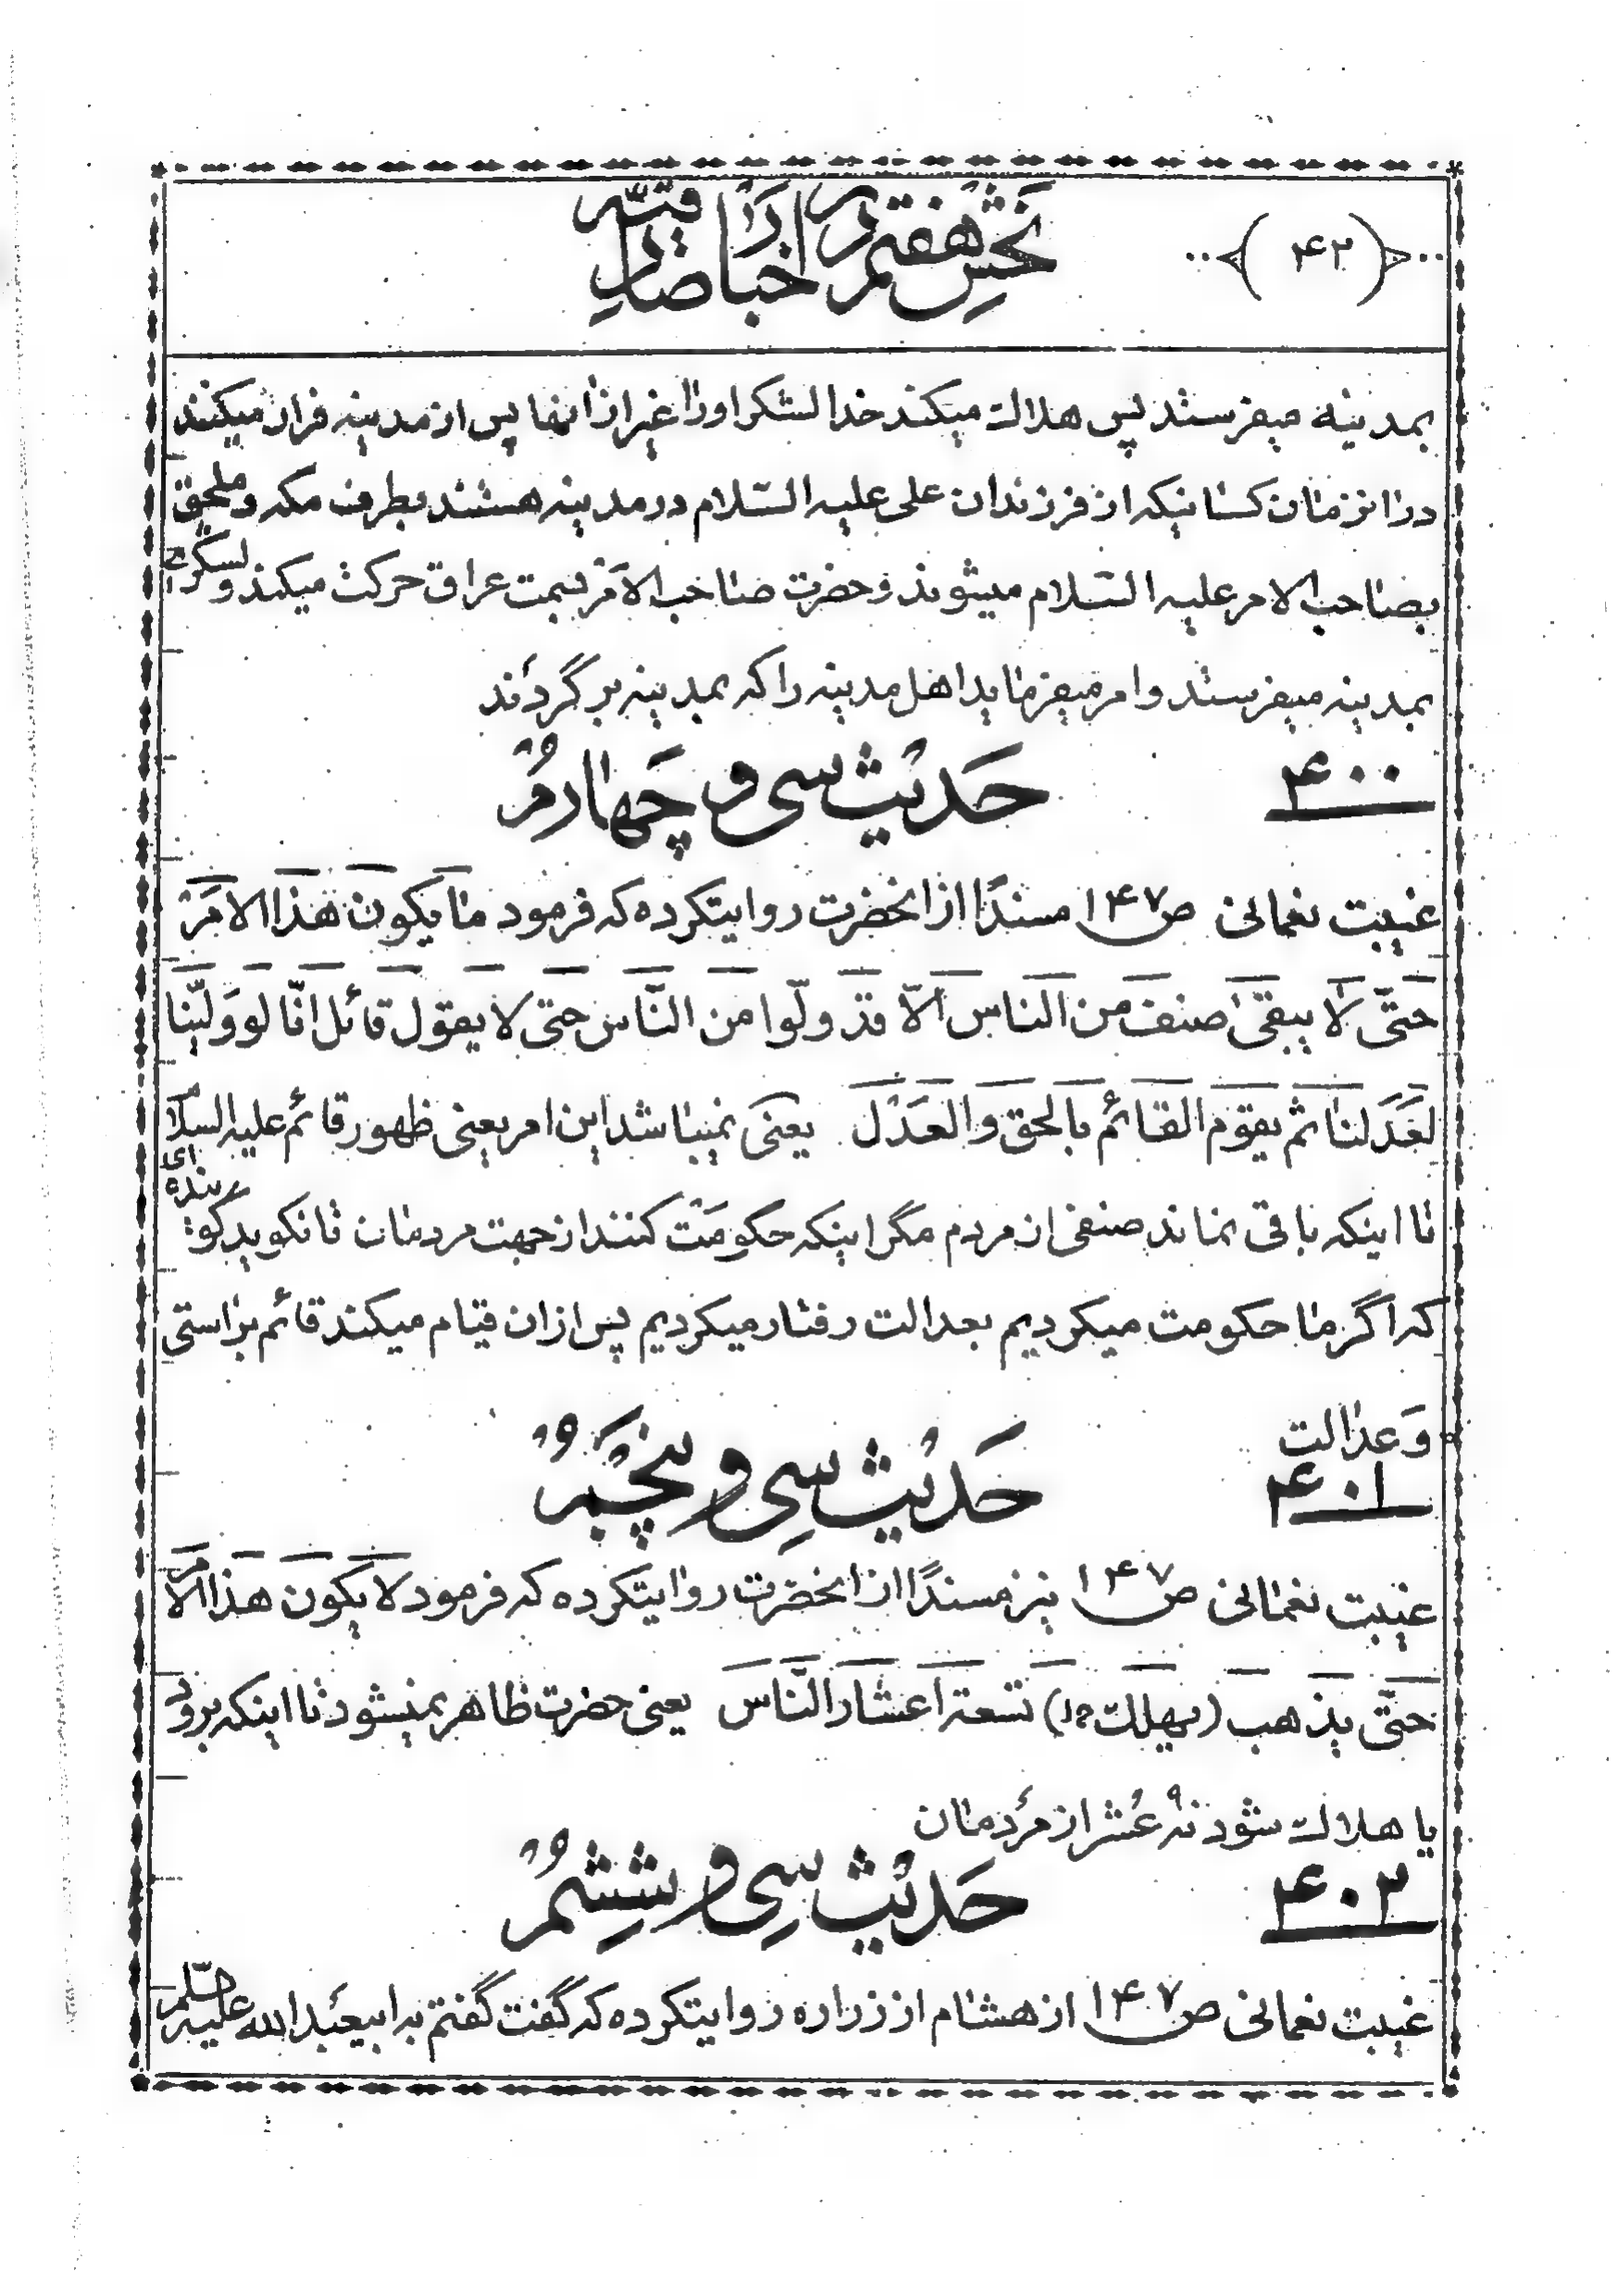 (۴۲)
بخش هفتم در اخبار صادقیّه
بمدینه میفرستد پس هلاك میکند خدا لشکر او را غیر از اینها پس از مدینه فرار میکنند
در انزمان کسانیکه از فرزندان علی علیه السّلام در مدینه هستند بطرف مکه و ملحق
بصاحب الامر علیه السّلام میشوند و حضرت صاحب الامر بسمت عراق حرکت میکند و لشکری
بمدینه میفرستد و امر میفرماید اهل مدینه را که بمدینه برگردند
۴۰۰
حَدیث سی و چَهارمُ
غیبت نعمانی ص۱۴۷ مسندًا از انحضرت روایتکرده که فرمود ما یکون هذا الامَرْ
حتّی لا یبقی صنف من الناس الّا قد ولّوا من النّاس حتی لا یقول قائل انّا لو وَلّینا
لعَدَلنا ثم یقوم القائم بالحق والعَدْل یعنی نمیباشد این امر یعنی ظهور قائم علیه السلام
تا اینکه باقی نماند صنفی از مردم مگر اینکه حکومَتْ کنند از جهت مردمان تا نگوید گویندهای
که اگر ما حکومت میکردیم بعدالت رفتار میکردیم پس از ان قیام میکند قائم براستی
وَ عدالت
۴۰۱
حَدیث سی و پنجُم
غیبت نعمانی ص۱۴۷ نیز مسندًا از انحضرت روایتکرده که فرمود لا یکون هذا الامر
حتّی یذهب (یهلك ١٢) تسعة اعشار النّاس یعنی حضرت ظاهر نمیشود تا اینکه برود
یا هلاك شود نه ۹ عُشر از مَردمان
۴۰۲
حَدیث سی و ششمُ
غیبت نعمانی ص۱۴۷ از هشام از زراره روایتکرده که گفت گفتم به ابیعَبدالله علیه